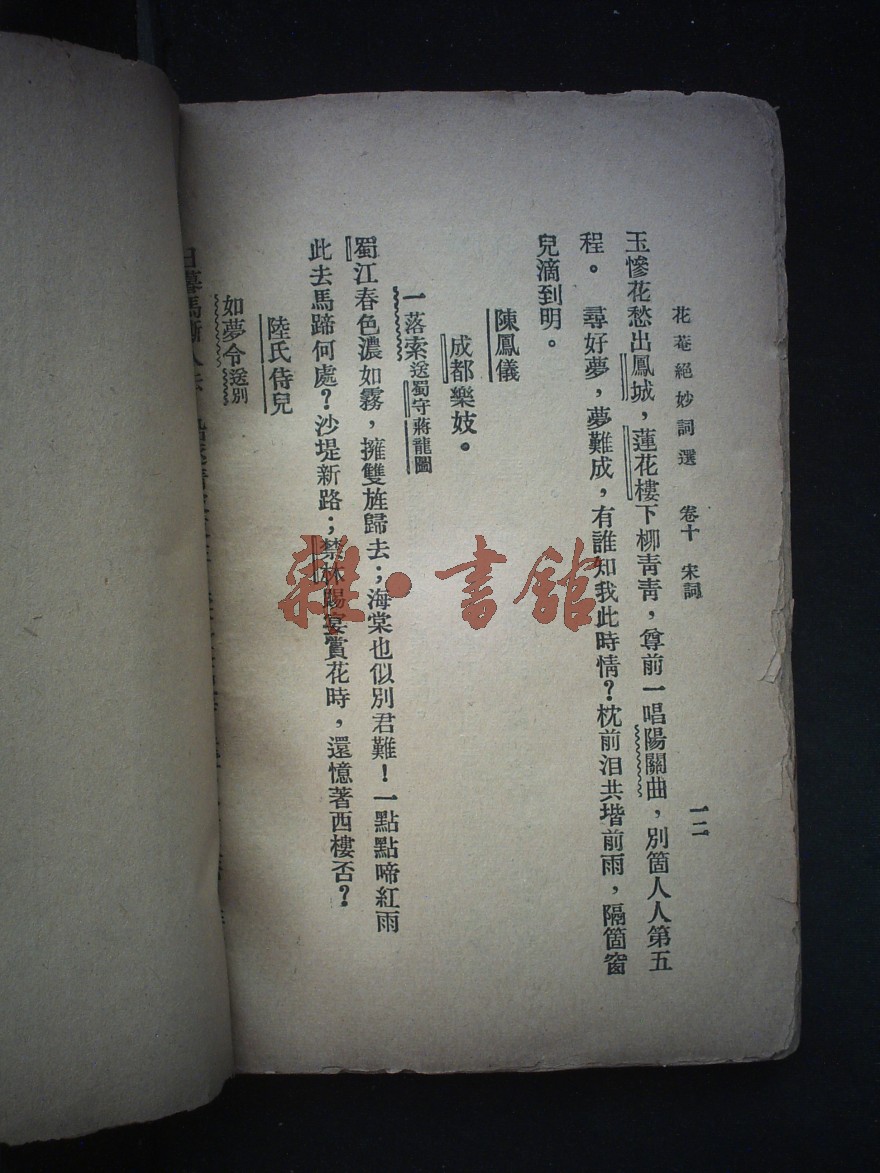 花菴絕妙詞選　卷十　宋詞　一二
玉慘花愁出鳳城，蓮花樓下柳青青，尊前一唱陽關曲，別箇人人第五
程。　尋好夢，夢難成，有誰知我此時情？枕前泪共堦前雨，隔箇窗
兒滴到明。
陳鳳儀
成都樂妓。
一落索送蜀守蔣龍圖
蜀江春色濃如霧，擁雙旌歸去；海棠也似別君難！一點點啼紅雨
此去馬蹄何處？沙堤新路；禁林賜宴賞花時，還憶著西樓否？
陸氏侍兒
如夢令送別
日暮馬嘶人去
雜·書館